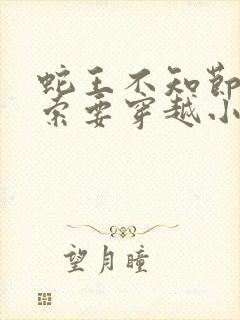 蛇王不知节
索要穿越小
望月瞳